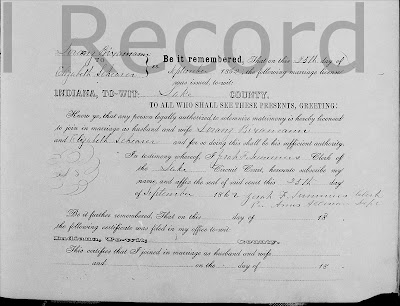 l Record
TO
Be it remembered, That on this 25th day of
Elizabeth Scherer September 1862, the following marriage license
was issued to-wit:
INDIANA, TO-WIT: Lake COUNTY,
TO ALL WHO SHALL SEE THESE PRESENTS, GREETING:
Know ye, that any person legally authorized to solemnize matrimony is hereby licensed
to join in marriage as husband and wife
and Elizabeth Scherer and for so doing this shall be his sufficient authority.
In testimony whereof, I Zerah F. Summers Clerk of
the Lake Circuit Court, hereunto subscribe my
name, and affix the seal of said court this 25th day
of September 1862 Zerah F. Summers Clerk
Be it further remembered, That on this day of 18
the following certificate was filed in my office to-wit:
INDIANA, TO-WIT: COUNTY.
This certifies that I joined in marriage as husband and wife
and on the day of 18